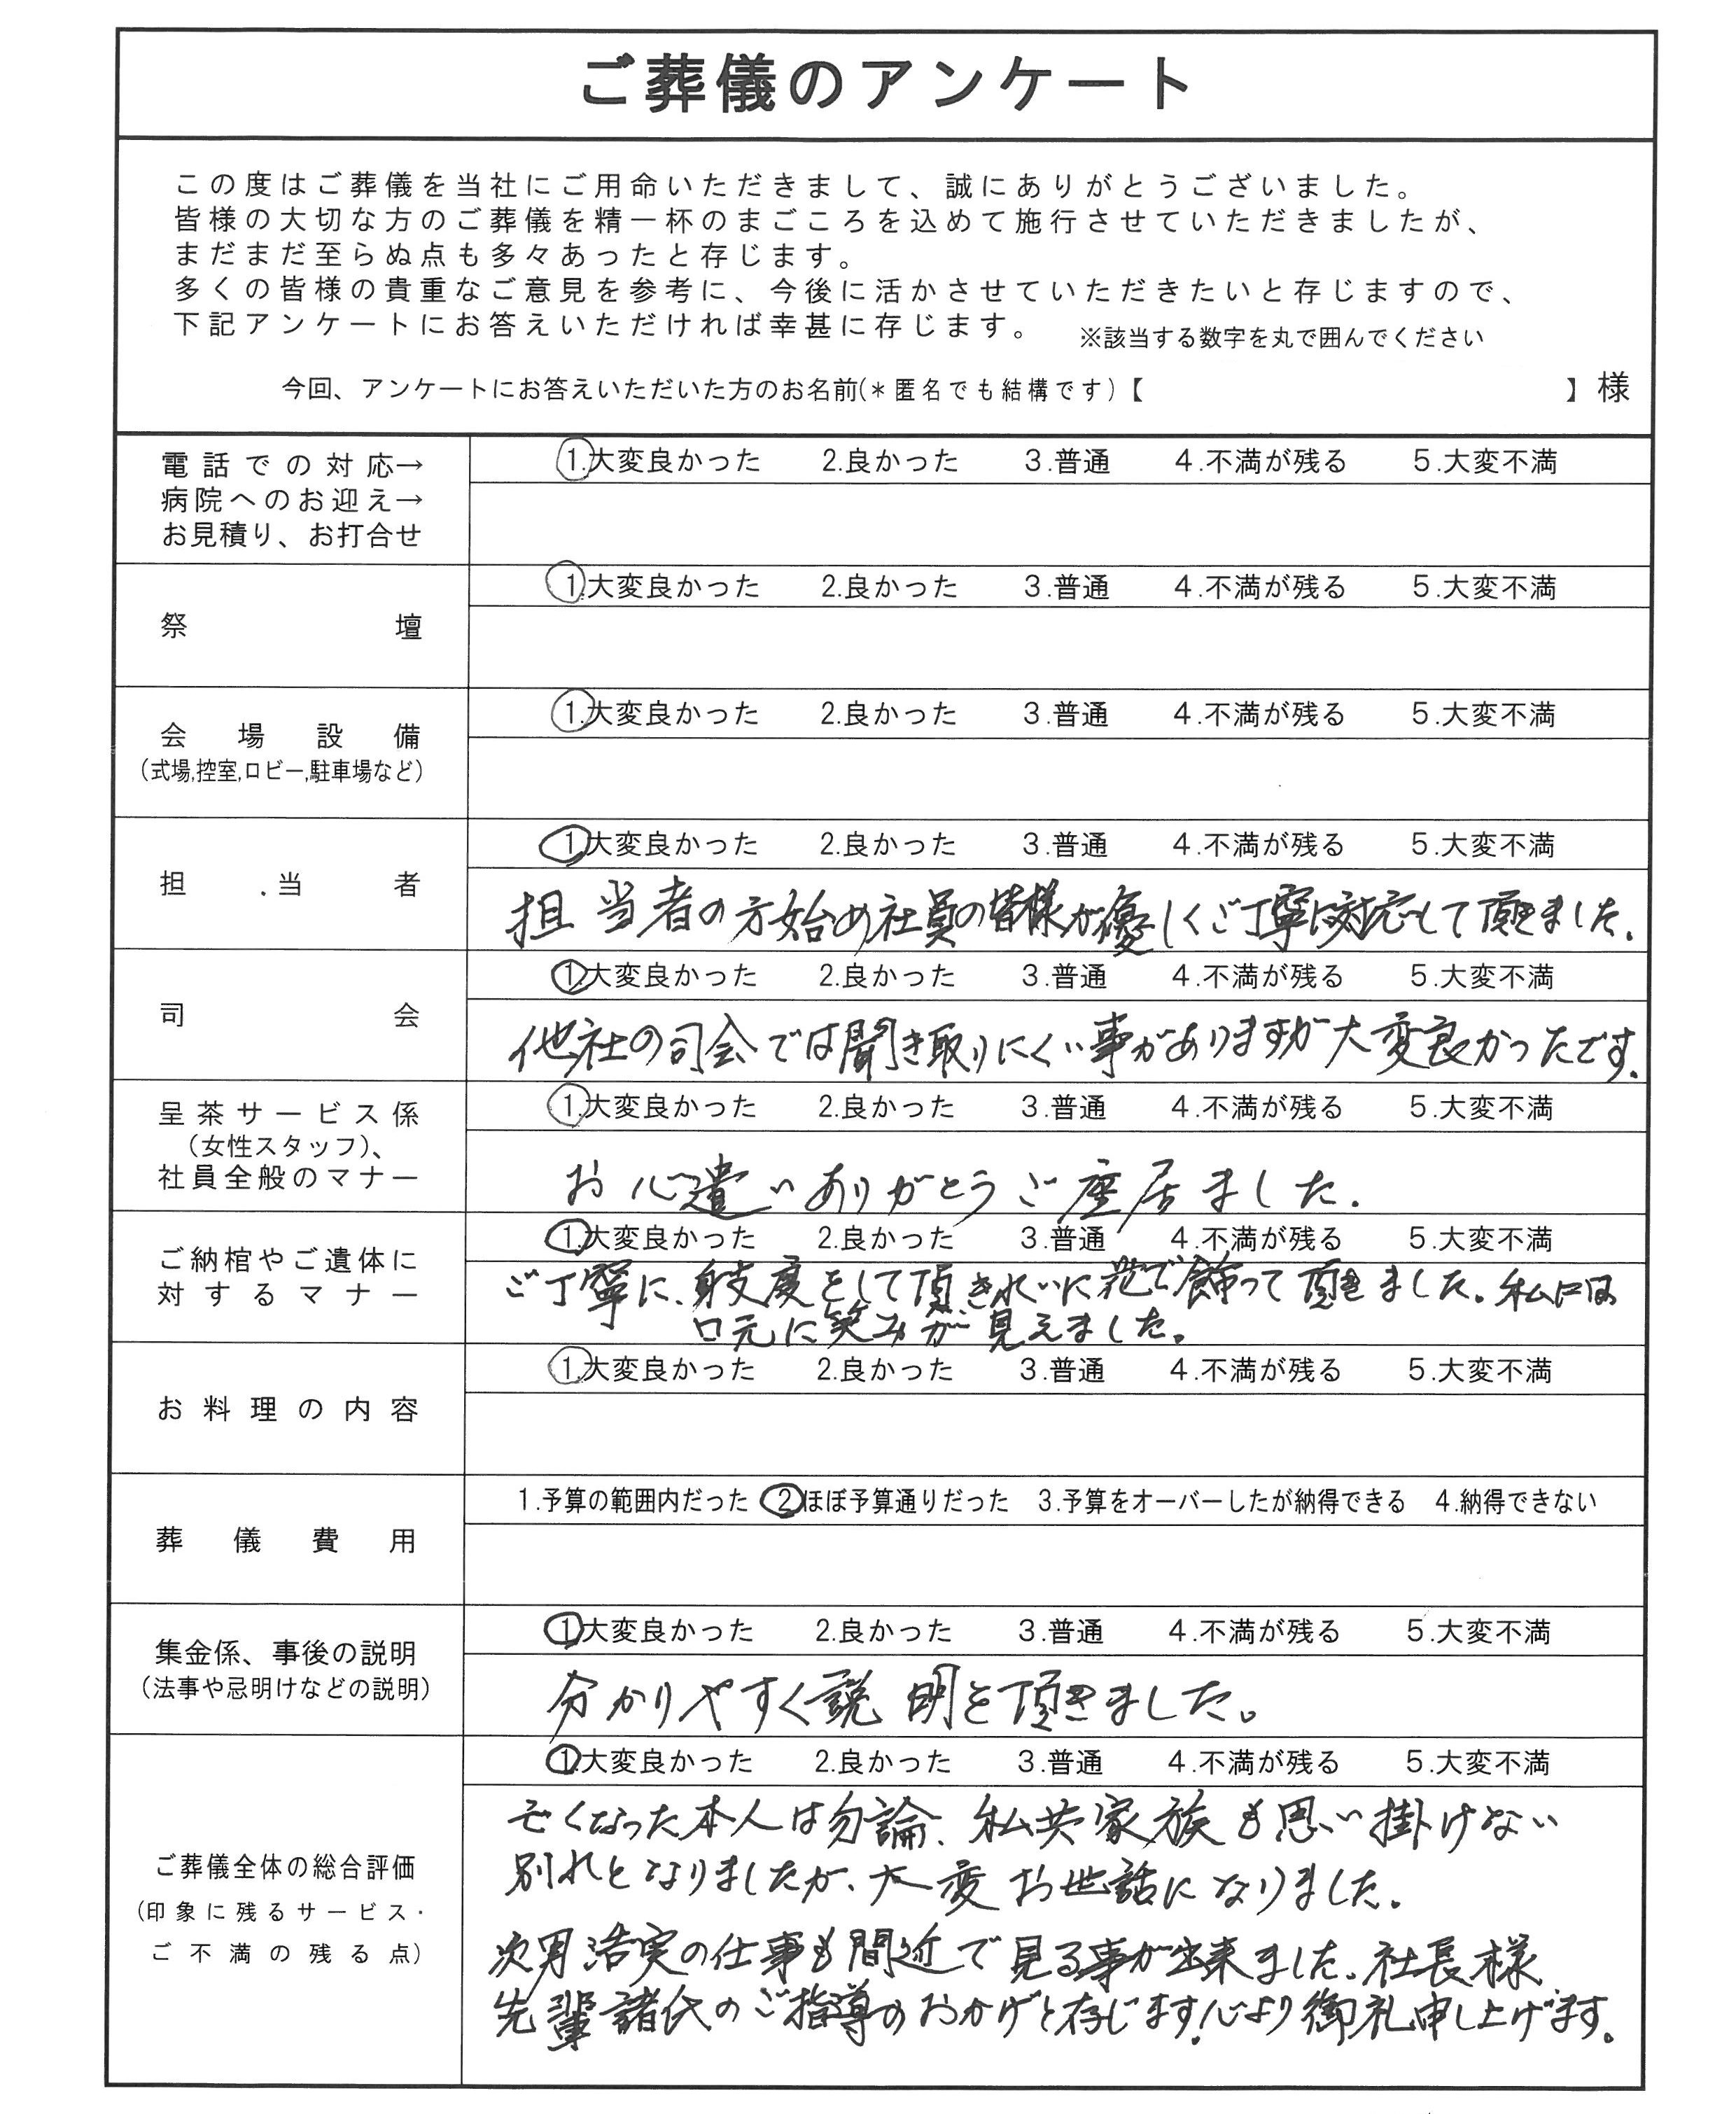 ご葬儀のアンケート
この度はご葬儀を当社にご用命いただきまして、誠にありがとうございました。
皆様の大切な方のご葬儀を精一杯のまごころを込めて施行させていただきましたが、
まだまだ至らぬ点も多々あったと存じます。
多くの皆様の貴重なご意見を参考に、今後に活かさせていただきたいと存じますので、
下記アンケートにお答えいただければ幸甚に存じます。 ※該当する数字を丸で囲んでください
今回、アンケートにお答えいただいた方のお名前(＊匿名でも結構です)【 】様
電話での対応→
病院へのお迎え→
お見積り、お打合せ
1.大変良かった 2.良かった 3.普通 4.不満が残る 5.大変不満
祭壇
1.大変良かった 2.良かった 3.普通 4.不満が残る 5.大変不満
会場設備
(式場,控室,ロビー,駐車場など)
1.大変良かった 2.良かった 3.普通 4.不満が残る 5.大変不満
担当者
1.大変良かった 2.良かった 3.普通 4.不満が残る 5.大変不満
担当者の方始め社員の皆様が優しくご丁寧に対応して頂きました.
司会
1.大変良かった 2.良かった 3.普通 4.不満が残る 5.大変不満
他社の司会では聞き取りにくい事がありますが大変良かったです.
呈茶サービス係
(女性スタッフ)、
社員全般のマナー
1.大変良かった 2.良かった 3.普通 4.不満が残る 5.大変不満
お心遣いありがとうご座居ました.
ご納棺やご遺体に
対するマナー
1.大変良かった 2.良かった 3.普通 4.不満が残る 5.大変不満
ご丁寧に、身支度をして頂ききれいに花で飾って頂きました。私には
口元に笑みが見えました。
お料理の内容
1.大変良かった 2.良かった 3.普通 4.不満が残る 5.大変不満
葬儀費用
1.予算の範囲内だった 2.ほぼ予算通りだった 3.予算をオーバーしたが納得できる 4.納得できない
集金係、事後の説明
(法事や忌明けなどの説明)
1.大変良かった 2.良かった 3.普通 4.不満が残る 5.大変不満
分かりやすく説明を頂きました。
ご葬儀全体の総合評価
(印象に残るサービス・
ご不満の残る点)
1.大変良かった 2.良かった 3.普通 4.不満が残る 5.大変不満
亡くなった本人は勿論、私共家族も思い掛けない
別れとなりましたが、大変お世話になりました。
次男浩実の仕事も間近で見る事が出来ました。社長様
先輩諸氏のご指導のおかげと存じます!心より御礼申し上げます。